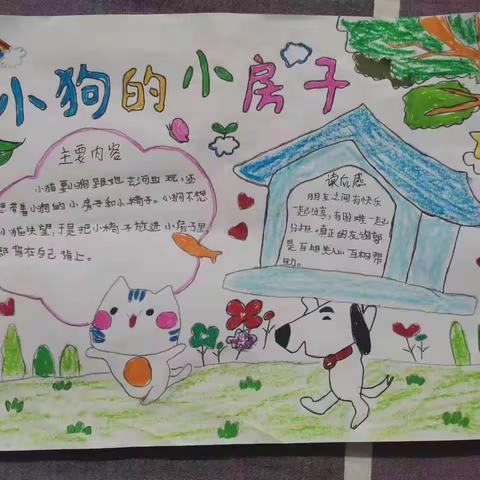 小狗的小房子
主要内容
小猫要小狗跟她去河边玩,还
想带着小狗的小房子和小椅子。小狗不想
小猫失望,于是把小椅子放进小房子里
都背在自己背上。
读后感
朋友之间有快乐
一起分享,有困难一起
分担。真正的友谊都
是互相关心互相帮
助。